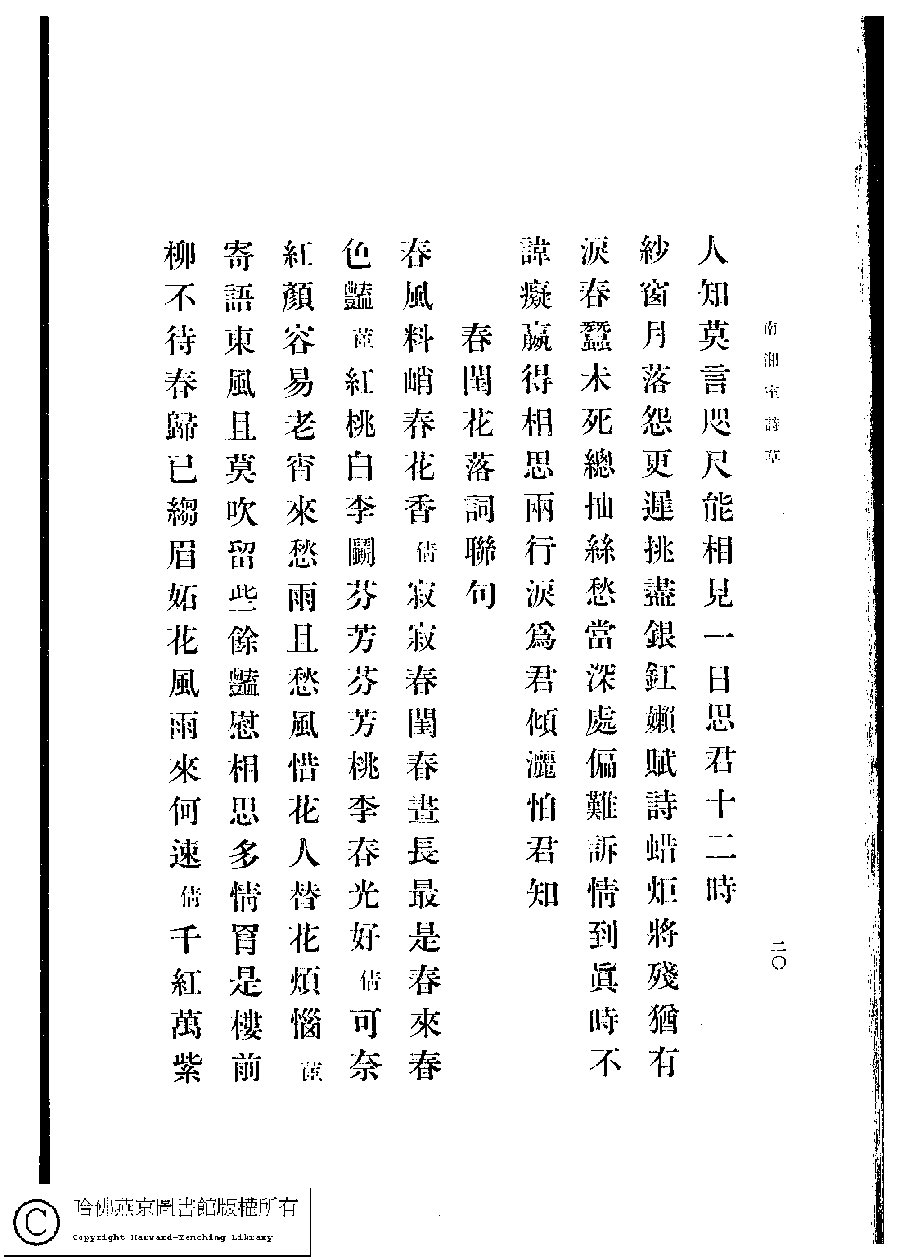 南湘室詩草
二〇
人知莫言咫尺能相見一日思君十二時
紗窗月落怨更遲挑盡銀釭嬾賦詩蜡炬將殘猶有
淚春蠶未死總抽絲愁當深處偏難訴情到眞時不
諱癡嬴得相思兩行淚爲君傾灑怕君知
春閨花落詞聯句
春風料峭春花香倩寂寂春閨春晝長最是春來春
色豔蓮紅桃白李鬭芬芳芬芳桃李春光好倩可奈
紅顏容易老宵來愁雨且愁風惜花人替花煩惱
寄語東風且莫吹留些餘豔慰相思多情胃是樓前
柳不待春歸已縐眉妬花風雨來何速倩千紅萬紫
哈佛燕京圖書館版權所有
Copyright Harvard-Yenching Library